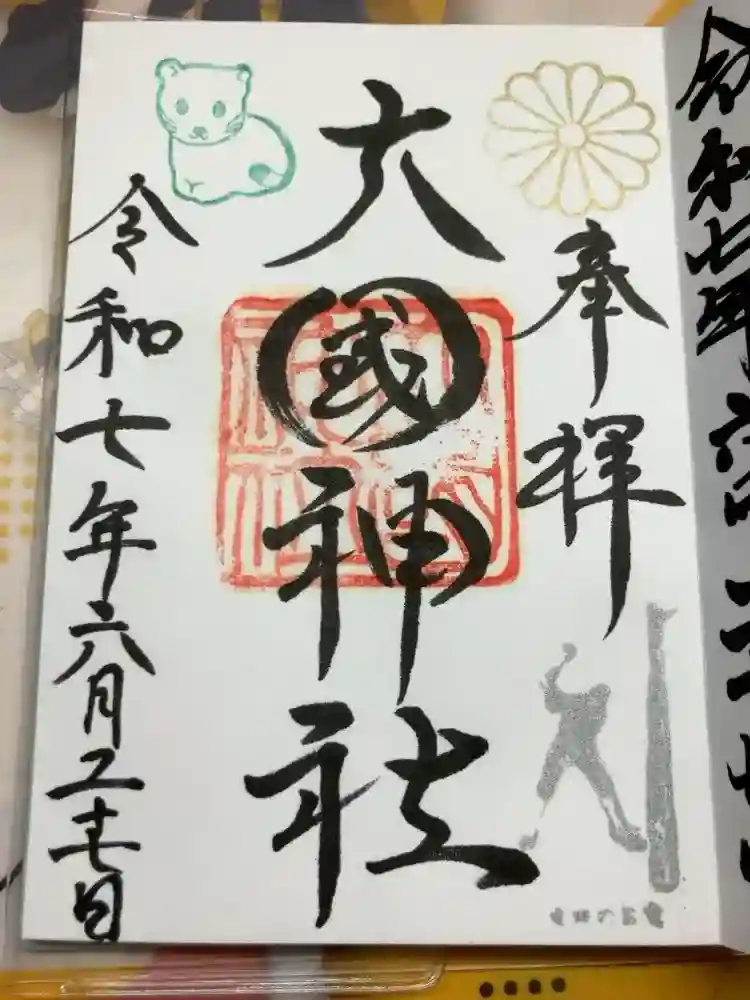 令和七年
奉拝
大國神社
令和七年六月二十七日